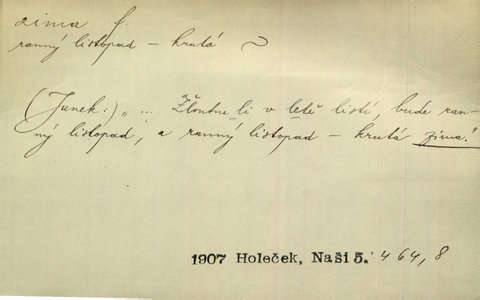 zima f.
ranný listopad – krutá ~
(Junek:) „ ... Žloutne li v létě listí, bude ran-
ný listopad, a ranný listopad – krutá zima."
1907 Holeček, Naši 5. 464, 8